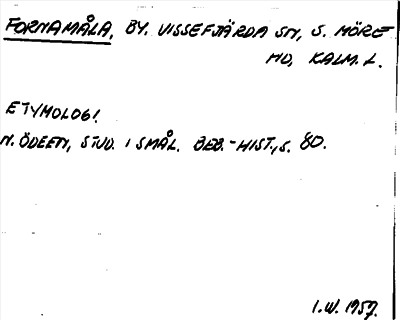 FORNAMÅLA, BY. VISSEFJÄRDA SN, S. MÖRE
HD, KALM. L.
ETYMOLOGI.
N. ÖDEEN, STUD. I SMÅL. BEB.-HIST., S. 80.
I.W. 1957.